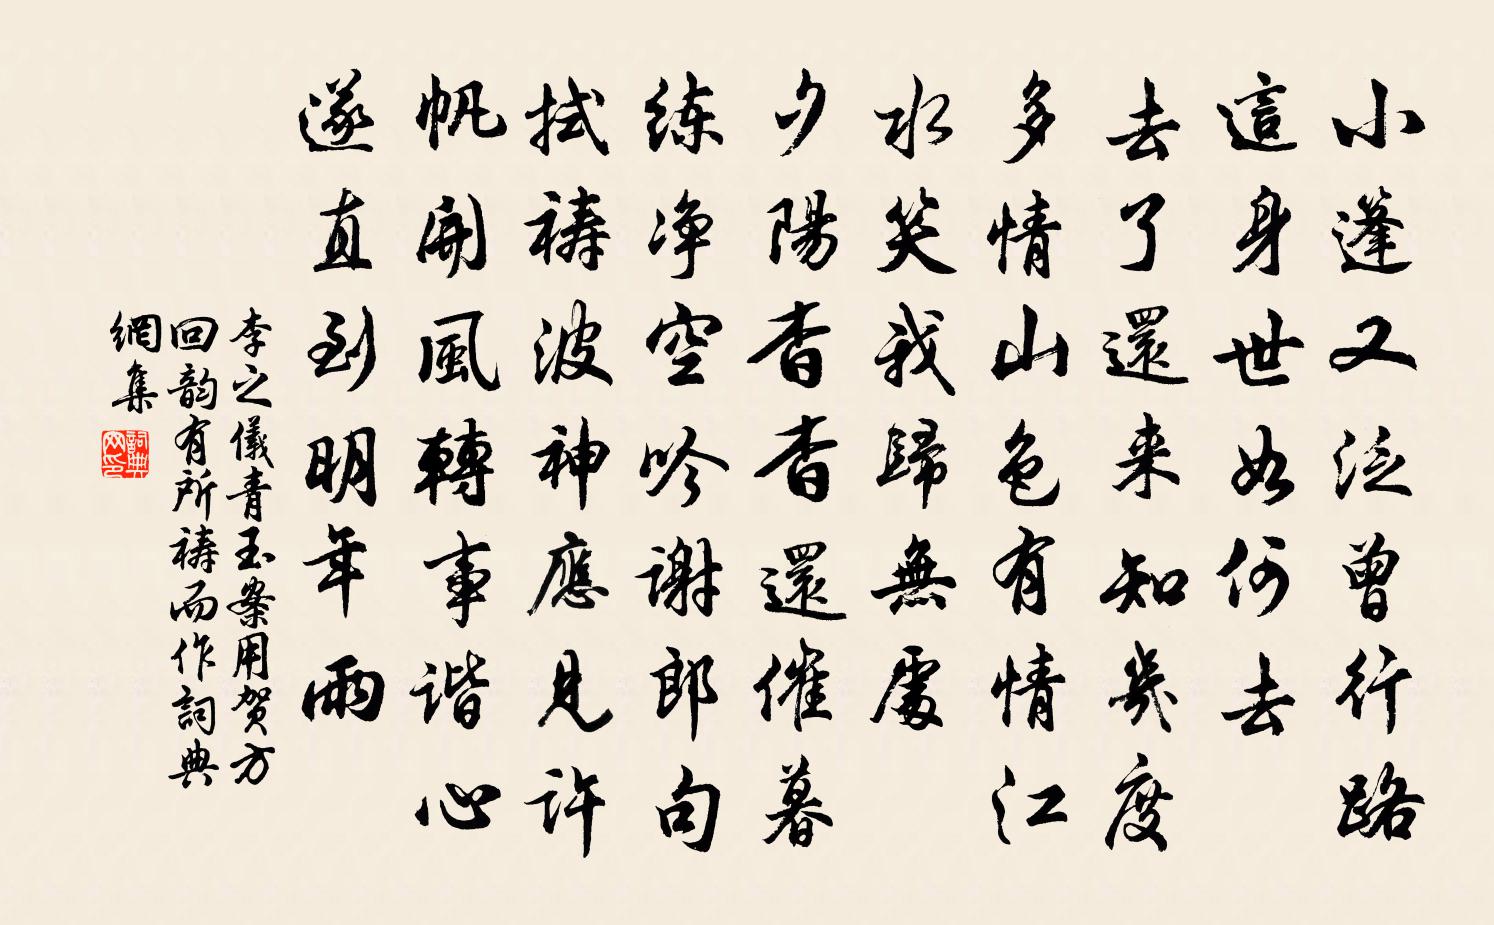 小蓬又泛曾行路
這身世如何去
去了還来知幾度
多情山色有情江
水笑我歸無處
夕陽杳杳還催暮
练净空吟謝郎句
拭祷波神應見許
帆開風轉事谐心
遂直到明年雨
李之儀青玉案用贺方
回韵有所祷而作詞典
網集
詞典
网印